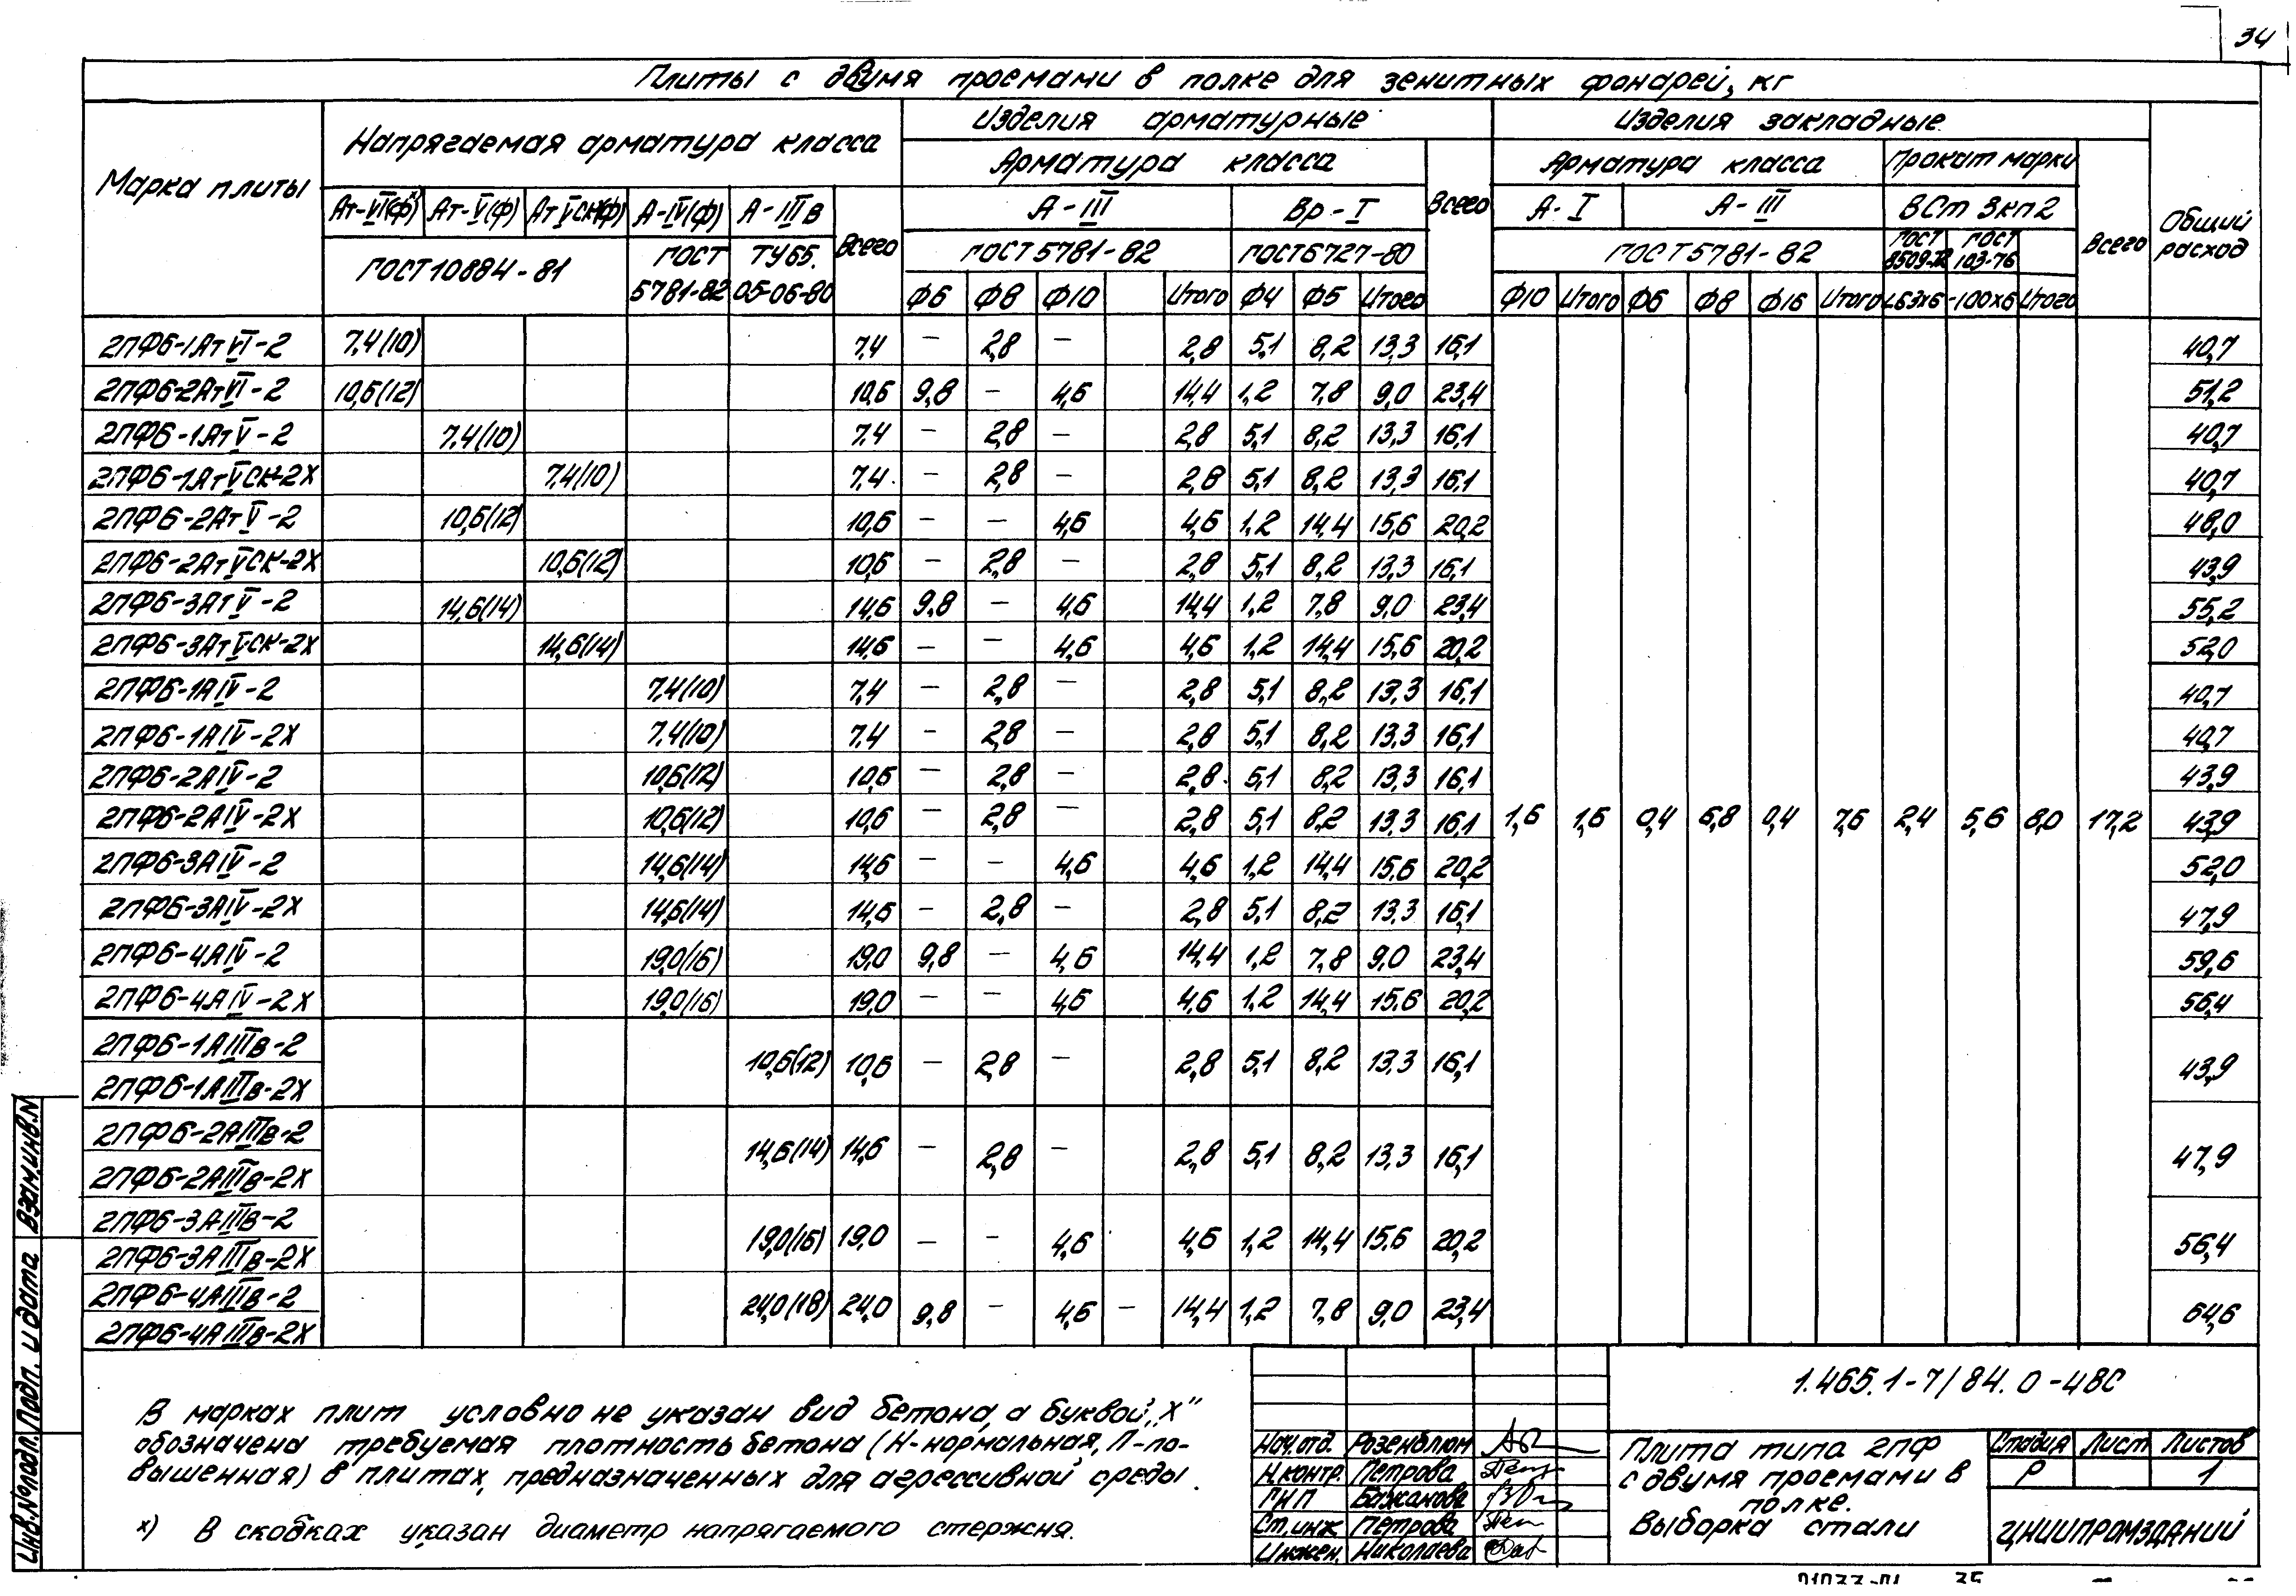 34
Плиты с двумя проемами в полке для зенитных фонарей, кг
Марка плиты
Напрягаемая арматура класса
Изделия арматурные
Изделия закладные
Общий расход
Арматура класса
Всего
Арматура класса
Прокат марки
Всего
Ат-VI(ф)ˣ Ат-V(ф) АтVСК(ф) А-IV(ф) А-IIIв Всего
А-III Вр-I
А-I А-III ВСт 3кп2
ГОСТ 10884-81 ГОСТ 5781-82 ТУ65. 05-06-80
ГОСТ 5781-82 ГОСТ 6727-80
ГОСТ 5781-82 ГОСТ 8509-72 ГОСТ 103-76
Ф6 Ф8 Ф10 Итого Ф4 Ф5 Итого
Ф10 Итого Ф6 Ф8 Ф16 Итого L63х6 -100х6 Итого
2ПФ6-1АтVI-2 7,4(10) 7,4 — 2,8 — 2,8 5,1 8,2 13,3 16,1 40,7
2ПФ6-2АтVI-2 10,6(12) 10,6 9,8 — 4,6 14,4 1,2 7,8 9,0 23,4 51,2
2ПФ6-1АтV-2 7,4(10) 7,4 — 2,8 — 2,8 5,1 8,2 13,3 16,1 40,7
2ПФ6-1АтVСК-2Х 7,4(10) 7,4 — 2,8 — 2,8 5,1 8,2 13,3 16,1 40,7
2ПФ6-2АтV-2 10,6(12) 10,6 — — 4,6 4,6 1,2 14,4 15,6 20,2 48,0
2ПФ6-2АтVСК-2Х 10,6(12) 10,6 — 2,8 — 2,8 5,1 8,2 13,3 16,1 43,9
2ПФ6-3АтV-2 14,6(14) 14,6 9,8 — 4,6 14,4 1,2 7,8 9,0 23,4 55,2
2ПФ6-3АтVСК-2Х 14,6(14) 14,6 — — 4,6 4,6 1,2 14,4 15,6 20,2 52,0
2ПФ6-1АIV-2 7,4(10) 7,4 — 2,8 — 2,8 5,1 8,2 13,3 16,1 40,7
2ПФ6-1АIV-2Х 7,4(10) 7,4 — 2,8 — 2,8 5,1 8,2 13,3 16,1 40,7
2ПФ6-2АIV-2 10,6(12) 10,6 — 2,8 — 2,8 5,1 8,2 13,3 16,1 43,9
2ПФ6-2АIV-2Х 10,6(12) 10,6 — 2,8 — 2,8 5,1 8,2 13,3 16,1 1,6 1,6 0,4 6,8 0,4 7,6 2,4 5,6 8,0 17,2 43,9
2ПФ6-3АIV-2 14,6(14) 14,6 — — 4,6 4,6 1,2 14,4 15,6 20,2 52,0
2ПФ6-3АIV-2Х 14,6(14) 14,6 — 2,8 — 2,8 5,1 8,2 13,3 16,1 47,9
2ПФ6-4АIV-2 19,0(16) 19,0 9,8 — 4,6 14,4 1,2 7,8 9,0 23,4 59,6
2ПФ6-4АIV-2Х 19,0(16) 19,0 — — 4,6 4,6 1,2 14,4 15,6 20,2 56,4
2ПФ6-1АIIIв-2
2ПФ6-1АIIIв-2Х
10,6(12) 10,6 — 2,8 — 2,8 5,1 8,2 13,3 16,1 43,9
2ПФ6-2АIIIв-2
2ПФ6-2АIIIв-2Х
14,6(14) 14,6 — 2,8 — 2,8 5,1 8,2 13,3 16,1 47,9
2ПФ6-3АIIIв-2
2ПФ6-3АIIIв-2Х
19,0(16) 19,0 — — 4,6 4,6 1,2 14,4 15,6 20,2 56,4
2ПФ6-4АIIIв-2
2ПФ6-4АIIIв-2Х
24,0(18) 24,0 9,8 — 4,6 — 14,4 1,2 7,8 9,0 23,4 64,6
В марках плит условно не указан вид бетона, а буквой „Х"
обозначена требуемая плотность бетона (Н-нормальная, П-по-
вышенная) в плитах, предназначенных для агрессивной среды.
х) В скобках указан диаметр напрягаемого стержня.
1.465.1-7/84.0-48С
Нач.отд. Розенблюм
Н.контр. Петрова
ГИП Бажанова
Ст.инж Петрова
Инжен. Николаева
Плита типа 2ПФ
с двумя проемами в
полке.
Выборка стали
Стадия Лист Листов
Р 1
ЦНИИПРОМЗДАНИЙ
Инв.№подл. Подп. и дата Взам.инв.№